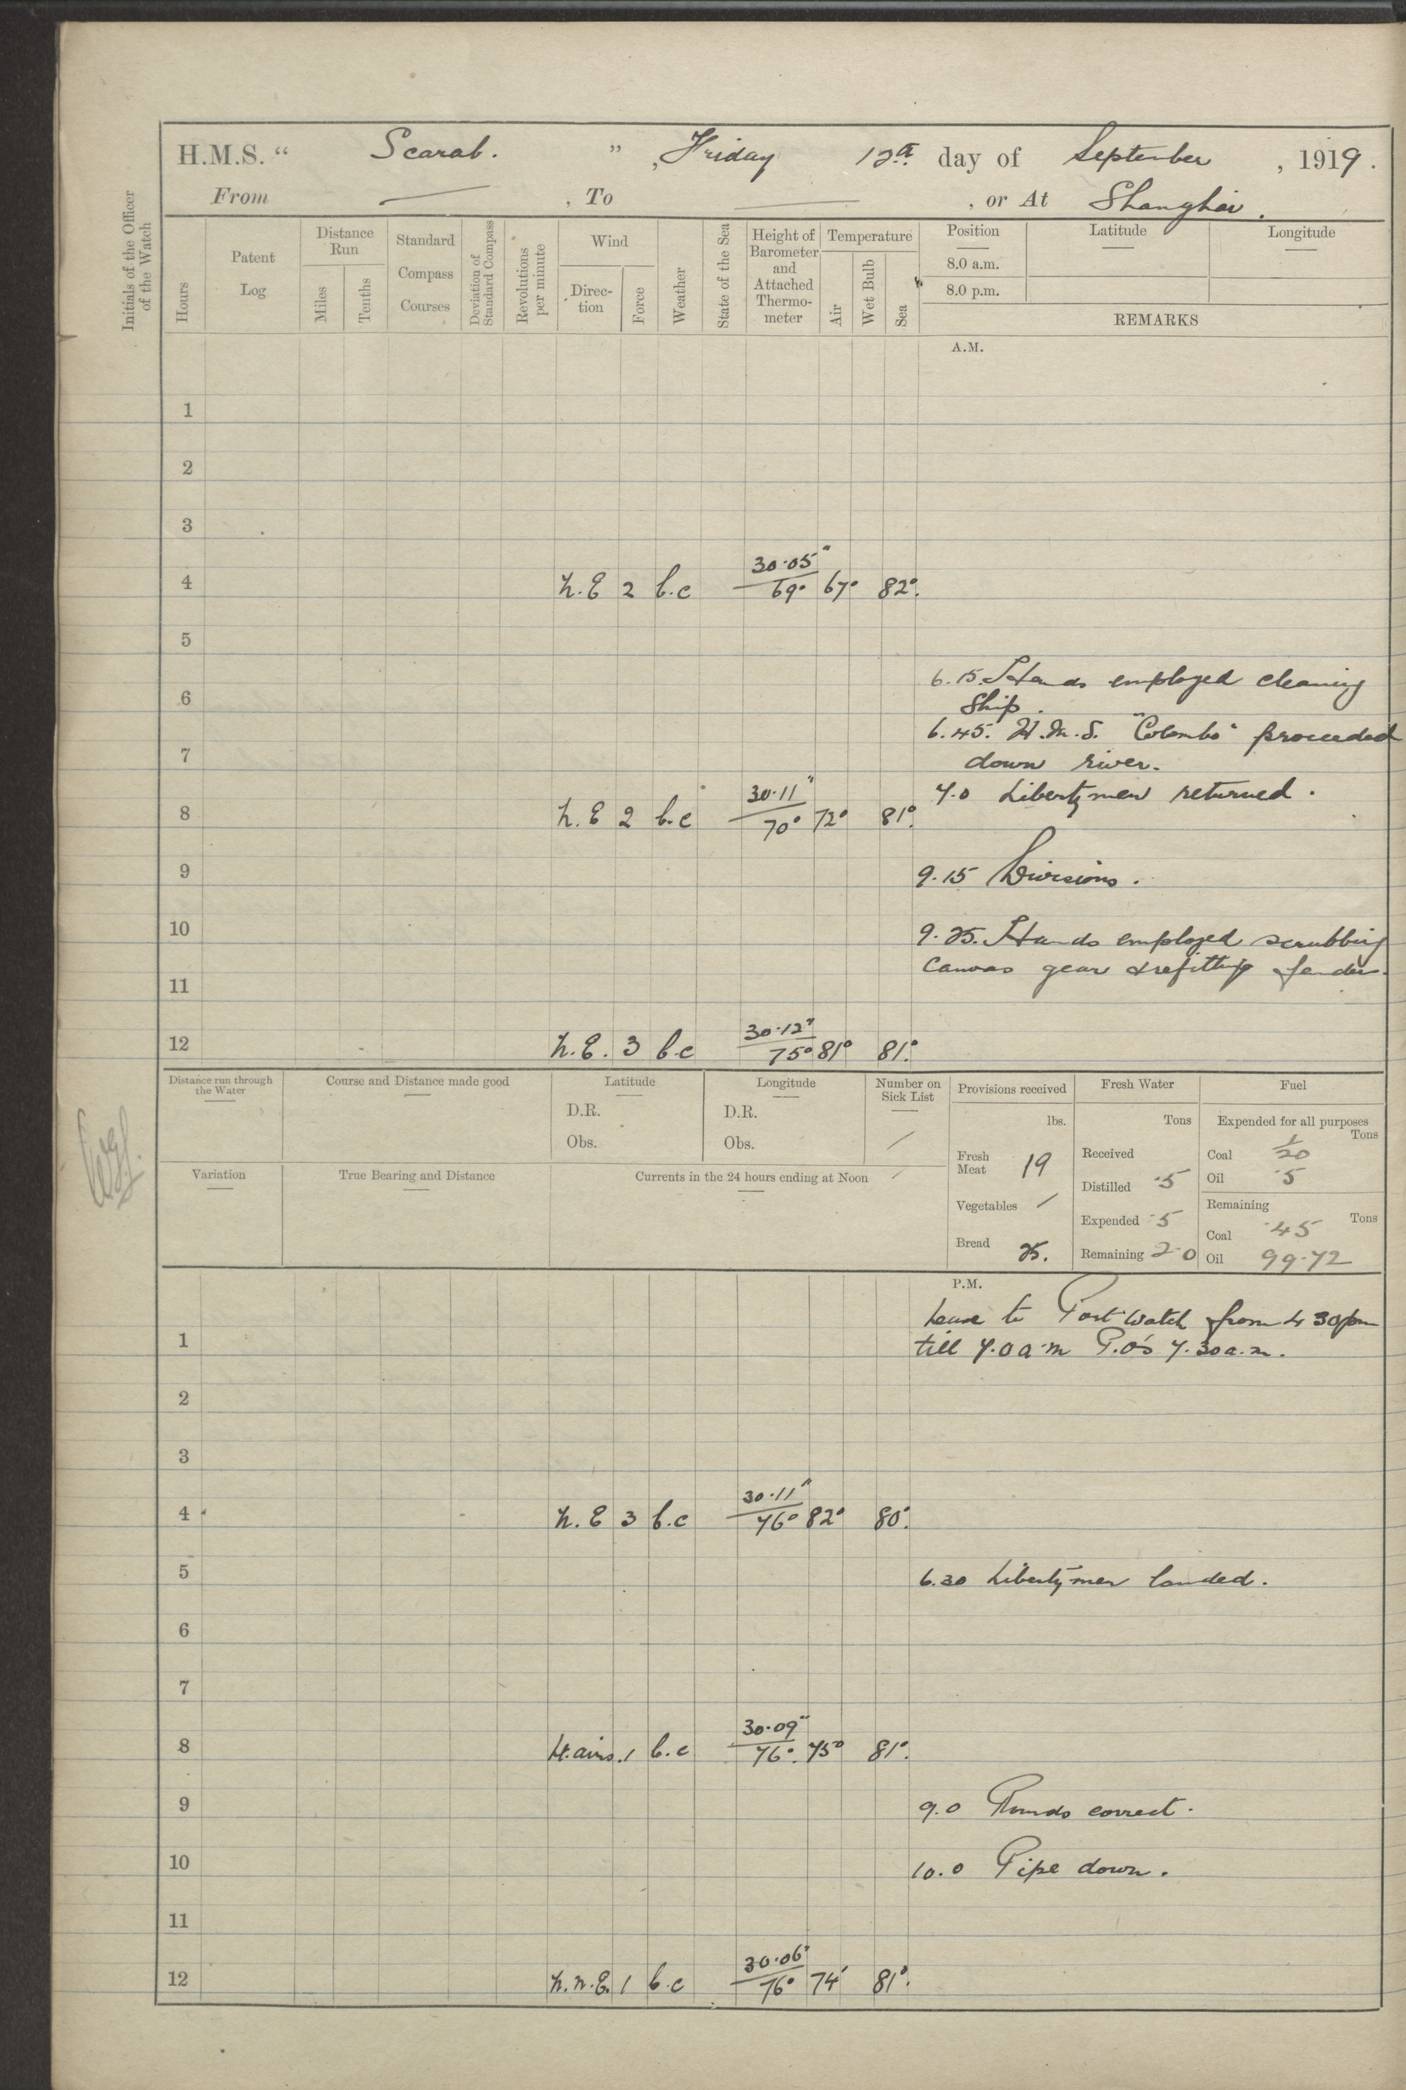 H.M.S. “ Scarab. ” , Friday 12th day of September , 1919.
From — , To — , or At Shanghai.
Initials of the Officer of the Watch
Hours
Patent Log
Distance Run
Miles
Tenths
Standard Compass Courses
Deviation of Standard Compass
Revolutions per minute
Wind
Direc-tion
Force
Weather
State of the Sea
Height of Barometer and Attached Thermo-meter
Temperature
Air
Wet Bulb
Sea
Position
8.0 a.m.
8.0 p.m.
Latitude
Longitude
REMARKS
A.M.
1
2
3
4 N.E 2 b.c 30.05" 69° 67° 82°.
5
6.15. Hands employed cleaning
6
Ship.
6.45. H.M.S. "Colombo" proceeded
7
down river.
7.0 Libertymen returned.
8 N.E 2 b.c 30.11" 70° 72° 81°.
9 9.15 Divisions.
10 9.25. Hands employed scrubbing
canvas gear & refitting fender.
11
12 N.E. 3 b.c 30.12" 75° 81° 81°.
Distance run through the Water
Course and Distance made good
Latitude
D.R.
Obs.
Longitude
D.R.
Obs.
Number on Sick List
/
Variation
True Bearing and Distance
Currents in the 24 hours ending at Noon
Provisions received
lbs.
Fresh Meat 19
Vegetables /
Bread 25.
Fresh Water
Tons
Received
Distilled .5
Expended .5
Remaining 20
Fuel
Expended for all purposes
Tons
Coal 1/20
Oil .5
Remaining
Tons
Coal .45
Oil 99.72
P.M.
Leave to Port Watch from 4 30 pm
1 till 7.0 a.m P.O's 7.30 a.m.
2
3
4 N.E 3 b.c 30.11" 76° 82° 80°.
5 6.30 Liberty men landed.
6
7
8 Lt. airs. 1 b.c 30.09" 76° 75° 81°.
9 9.0 Rounds correct.
10 10.0 Pipe down.
11
12 N.N.E. 1 b.c 30.06" 76° 74° 81°.